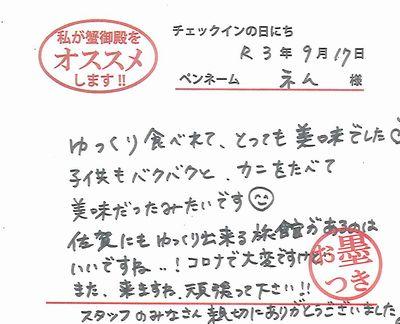 私が蟹御殿を
オススメ
します!!
チェックインの日にち
R3年9月17日
ペンネーム えん 様
ゆっくり食べれて、とっても美味でした
子供もバクバクと、カニをたべて
美味だったみたいです
佐賀にもゆっくり出来る旅館があるのは
いいですね..! コロナで大変ですけど
また、来ますね。頑張って下さい!!
スタッフのみなさん親切にありがとうございました
お墨
つき